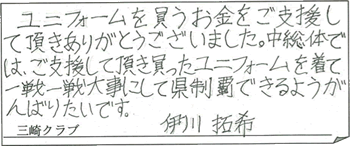 ユニフォームを買うお金をご支援し
て頂きありがとうございました。中総体で
は、ご支援して頂き買ったユニフォームを着て
一戦一戦大事にして県制覇できるようが
んばりたいです。
三崎クラブ 伊川 拓希